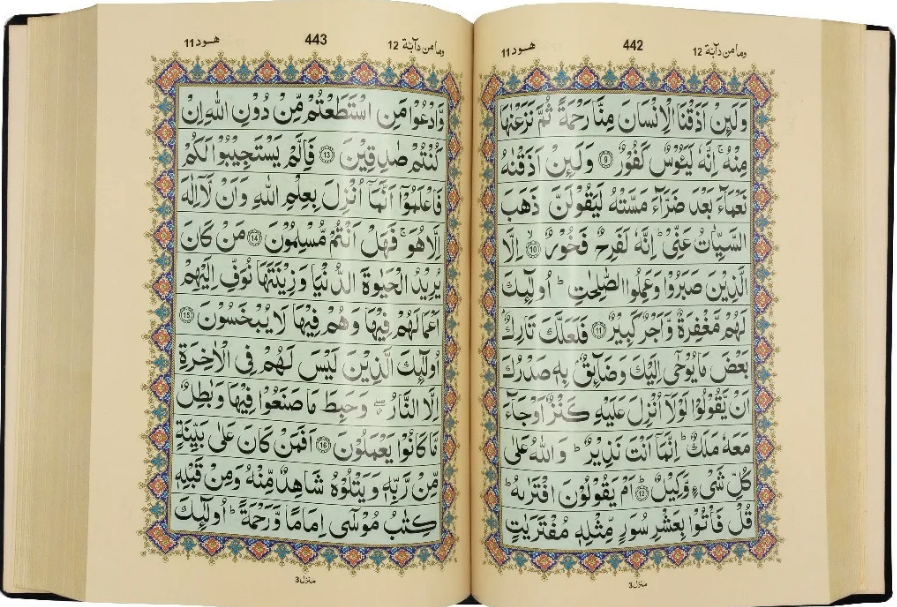 وما من دآبة 12 442 هود 11
وَلَئِنْ اَذَقْنَا الْاِنْسَانَ مِنَّا رَحْمَةً ثُمَّ نَزَعْنٰهَا
مِنْهُ ۚ اِنَّهٗ لَيَئُوْسٌ كَفُوْرٌ ۝9 وَلَئِنْ اَذَقْنٰهُ
نَعْمَآءَ بَعْدَ ضَرَّآءَ مَسَّتْهُ لَيَقُوْلَنَّ ذَهَبَ
السَّيِّاٰتُ عَنِّيْ ؕ اِنَّهٗ لَفَرِحٌ فَخُوْرٌ ۙ۝10 اِلَّا
الَّذِيْنَ صَبَرُوْا وَعَمِلُوا الصّٰلِحٰتِ ؕ اُولٰٓئِكَ
لَهُمْ مَّغْفِرَةٌ وَّاَجْرٌ كَبِيْرٌ ۝11 فَلَعَلَّكَ تَارِكٌۢ
بَعْضَ مَا يُوْحٰٓى اِلَيْكَ وَضَآئِقٌۢ بِهٖ صَدْرُكَ
اَنْ يَّقُوْلُوْا لَوْلَاۤ اُنْزِلَ عَلَيْهِ كَنْزٌ اَوْ جَآءَ
مَعَهٗ مَلَكٌ ؕ اِنَّمَاۤ اَنْتَ نَذِيْرٌ ؕ وَاللّٰهُ عَلٰى
كُلِّ شَيْءٍ وَّكِيْلٌ ؕ۝12 اَمْ يَقُوْلُوْنَ افْتَرٰىهُ ؕ
قُلْ فَاْتُوْا بِعَشْرِ سُوَرٍ مِّثْلِهٖ مُفْتَرَيٰتٍ
منزل 3
وما من دآبة 12 443 هود 11
وَّادْعُوْا مَنِ اسْتَطَعْتُمْ مِّنْ دُوْنِ اللّٰهِ اِنْ
كُنْتُمْ صٰدِقِيْنَ ۝13 فَاِلَّمْ يَسْتَجِيْبُوْا لَكُمْ
فَاعْلَمُوْۤا اَنَّمَاۤ اُنْزِلَ بِعِلْمِ اللّٰهِ وَاَنْ لَّاۤ اِلٰهَ
اِلَّا هُوَ ۚ فَهَلْ اَنْتُمْ مُّسْلِمُوْنَ ۝14 مَنْ كَانَ
يُرِيْدُ الْحَيٰوةَ الدُّنْيَا وَزِيْنَتَهَا نُوَفِّ اِلَيْهِمْ
اَعْمَالَهُمْ فِيْهَا وَهُمْ فِيْهَا لَا يُبْخَسُوْنَ ۝15
اُولٰٓئِكَ الَّذِيْنَ لَيْسَ لَهُمْ فِى الْاٰخِرَةِ
اِلَّا النَّارُ ۖ وَحَبِطَ مَا صَنَعُوْا فِيْهَا وَبٰطِلٌ
مَّا كَانُوْا يَعْمَلُوْنَ ۝16 اَفَمَنْ كَانَ عَلٰى بَيِّنَةٍ
مِّنْ رَّبِّهٖ وَيَتْلُوْهُ شَاهِدٌ مِّنْهُ وَمِنْ قَبْلِهٖ
كِتٰبُ مُوْسٰٓى اِمَامًا وَّرَحْمَةً ؕ اُولٰٓئِكَ
منزل 3